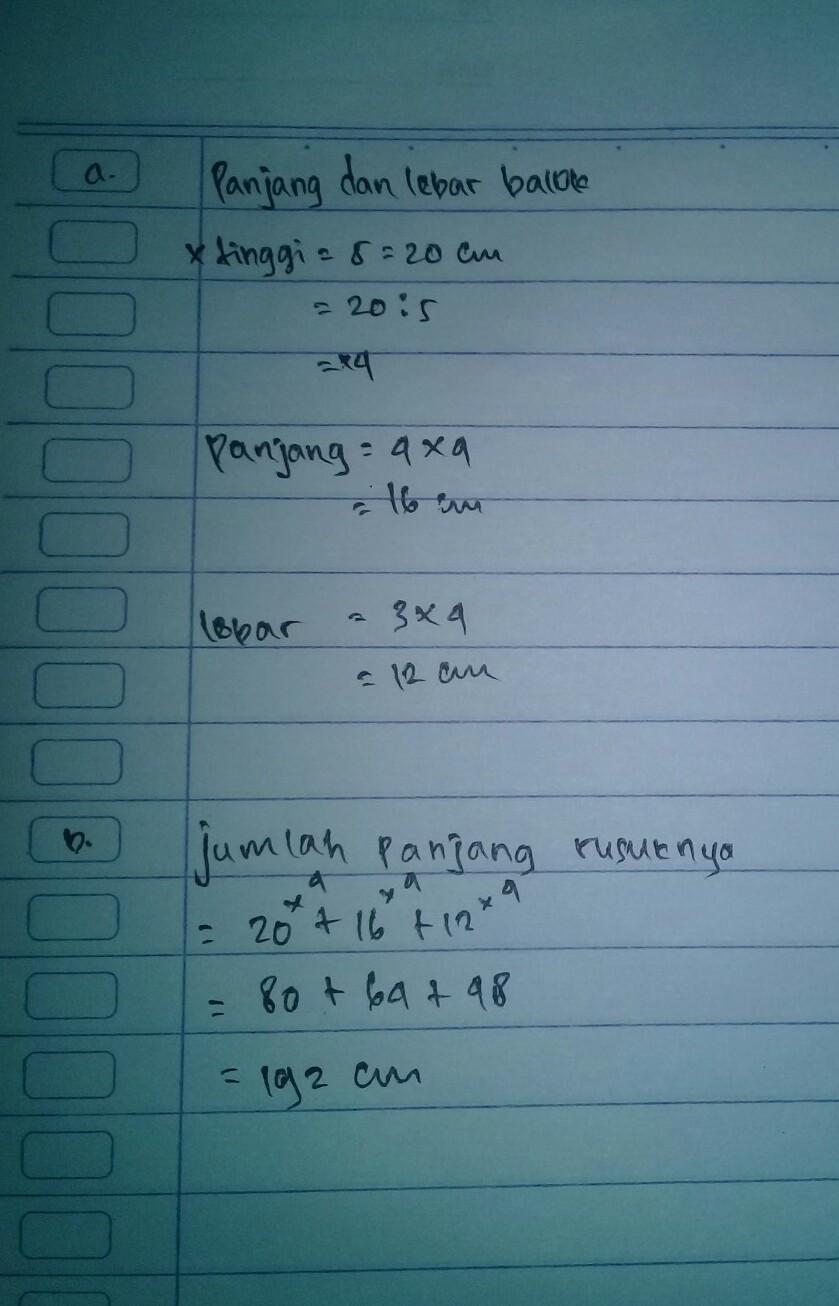 a. Panjang dan lebar balok
x tinggi = 5 = 20 cm
= 20 : 5
= x4
Panjang = 4 x 4
= 16 cm
lebar = 3 x 4
= 12 cm
b. jumlah panjang rusuknya
= 20 x 4 + 16 x 4 + 12 x 4
= 80 + 64 + 48
= 192 cm